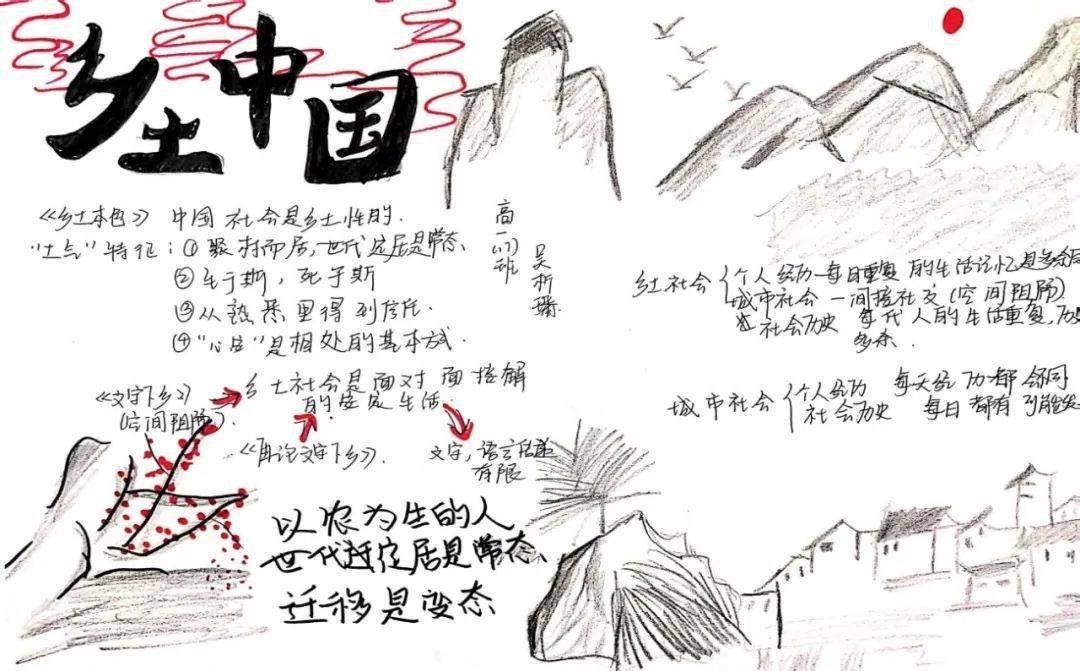 乡土中国
《乡土本色》 中国社会是乡土性的.
"土气"特征:①聚村而居,世代定居是常态、
②生于斯,死于斯
③从熟悉里得到信任.
④"心安"是相处的基本方式.
高一(7)班
吴析
《文字下乡》
(空间阻隔).
乡土社会是面对面接解
的定居生活.
《再论文字下乡》.
文字,语言
有限
以农为生的人
世代定居是常态、
迁移是变态
乡土社会
个人经历 每日重复的生活记忆是多余
城市社会 一间接社交(空间阻隔)
社会历史 每代人的生活重复,历
多余.
城市社会
个人经历 每天经历都会不同
社会历史 每日都有可能